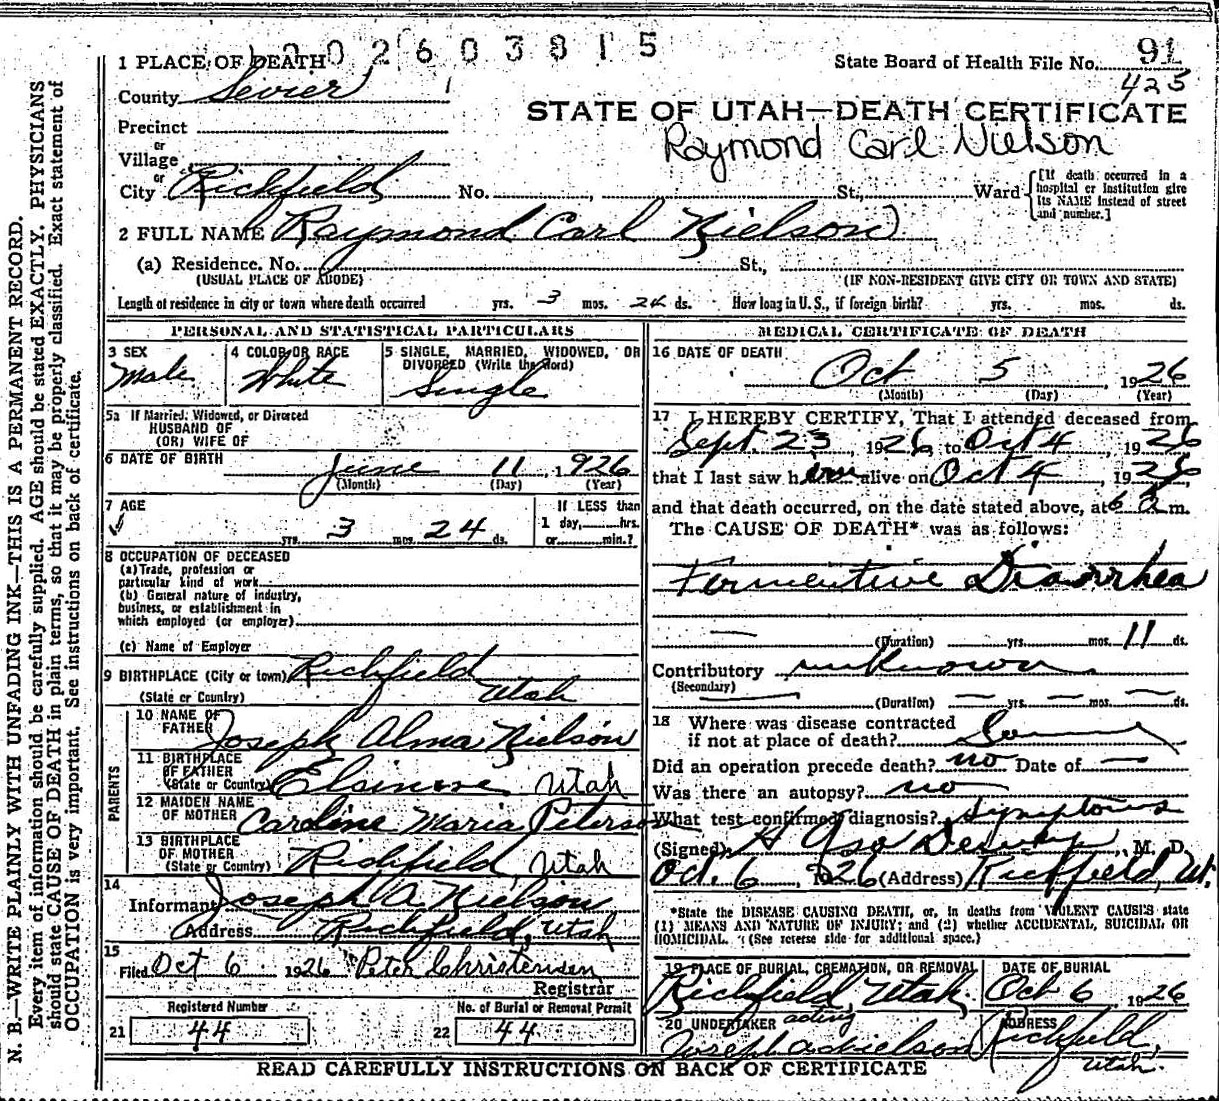 1 PLACE OF DEATH
1 0 0 2 6 0 3 8 1 5
State Board of Health File No. 91
425
County Sevier
STATE OF UTAH—DEATH CERTIFICATE
Precinct
Raymond Carl Nielson
or
Village
or
City Richfield No. , St., Ward
[If death occurred in a hospital or institution give its NAME instead of street and number.]
2 FULL NAME Raymond Carl Nielson
(a) Residence. No. St.,
(USUAL PLACE OF ABODE) (IF NON-RESIDENT GIVE CITY OR TOWN AND STATE)
Length of residence in city or town where death occurred yrs. 3 mos. 24 ds. How long in U.S., if foreign birth? yrs. mos. ds.
PERSONAL AND STATISTICAL PARTICULARS
3 SEX
Male
4 COLOR OR RACE
White
5 SINGLE, MARRIED, WIDOWED, OR
DIVORCED (Write the Word)
Single
5a If Married, Widowed, or Divorced
HUSBAND OF
(OR) WIFE OF
6 DATE OF BIRTH June 11 1926
(Month) (Day) (Year)
7 AGE
yrs. 3 mos. 24 ds.
If LESS than
1 day, hrs.
or min.?
8 OCCUPATION OF DECEASED
(a) Trade, profession or
particular kind of work
(b) General nature of industry,
business, or establishment in
which employed (or employer)
(c) Name of Employer
9 BIRTHPLACE (City or town) Richfield
(State or Country) Utah
PARENTS
10 NAME OF
FATHER Joseph Alma Nielson
11 BIRTHPLACE
OF FATHER
(State or Country) Elsinore Utah
12 MAIDEN NAME
OF MOTHER Caroline Maria Peterson
13 BIRTHPLACE
OF MOTHER
(State or Country) Richfield, Utah
14
Informant Joseph A. Nielson
Address Richfield, Utah
15
Filed Oct 6 1926 Peter Christensen
Registrar
Registered Number
21 44
No. of Burial or Removal Permit
22 44
MEDICAL CERTIFICATE OF DEATH
16 DATE OF DEATH
Oct 5, 1926
(Month) (Day) (Year)
17 I HEREBY CERTIFY, That I attended deceased from
Sept. 23, 1926, to Oct 4, 1926
that I last saw him alive on Oct 4, 1926
and that death occurred, on the date stated above, at 6 a. m.
The CAUSE OF DEATH* was as follows:
Fermentive Diarrhea
(Duration) yrs. mos. 11 ds.
Contributory unknown
(Secondary)
(Duration) yrs. mos. ds.
18 Where was disease contracted
if not at place of death?
Did an operation precede death? no Date of
Was there an autopsy? no
What test confirmed diagnosis? Symptoms
(Signed) H Asa Dewey, M. D.
Oct. 6, 1926 (Address) Richfield, Ut.
*State the DISEASE CAUSING DEATH, or, in deaths from VIOLENT CAUSES state
(1) MEANS AND NATURE OF INJURY; and (2) whether ACCIDENTAL, SUICIDAL OR
HOMICIDAL. (See reverse side for additional space.)
19 PLACE OF BURIAL, CREMATION, OR REMOVAL
Richfield, Utah.
DATE OF BURIAL
Oct 6 1926
20 UNDERTAKER acting
Joseph A Nielson
ADDRESS
Richfield,
Utah.
READ CAREFULLY INSTRUCTIONS ON BACK OF CERTIFICATE
N. B.—WRITE PLAINLY WITH UNFADING INK—THIS IS A PERMANENT RECORD.
Every item of information should be carefully supplied. AGE should be stated EXACTLY. PHYSICIANS
should state CAUSE OF DEATH in plain terms, so that it may be properly classified. Exact statement of
OCCUPATION is very important. See instructions on back of certificate.